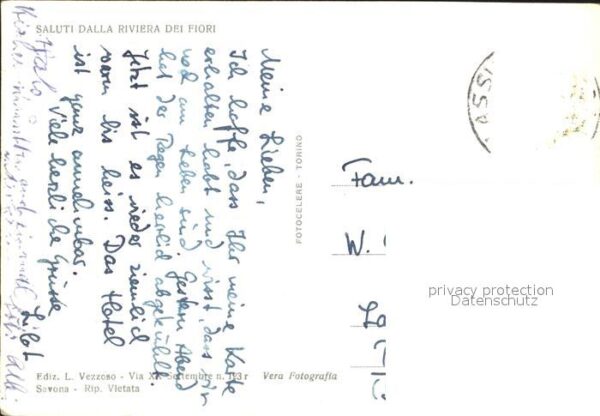 SALUTI DALLA RIVIERA DEI FIORI
Meine Lieben,
Ich hoffe, dass Ihr meine Karte
erhalten habt und wisst dass wir
noch am Leben sind. Gestern Abend
hat der Regen herrlich abgekühlt.
Jetzt ist es wieder ziemlich
warm bis heiss. Das Hotel
ist ganz annehmbar.
Viele herzliche Grüsse
Lilot
FOTOCELERE - TORINO
Fam.
W.
privacy protection
Datenschutz
Ediz. L. Vezzoso - Via XX Settembre n. 123 r Vera Fotografia
Savona - Rip. Vietata